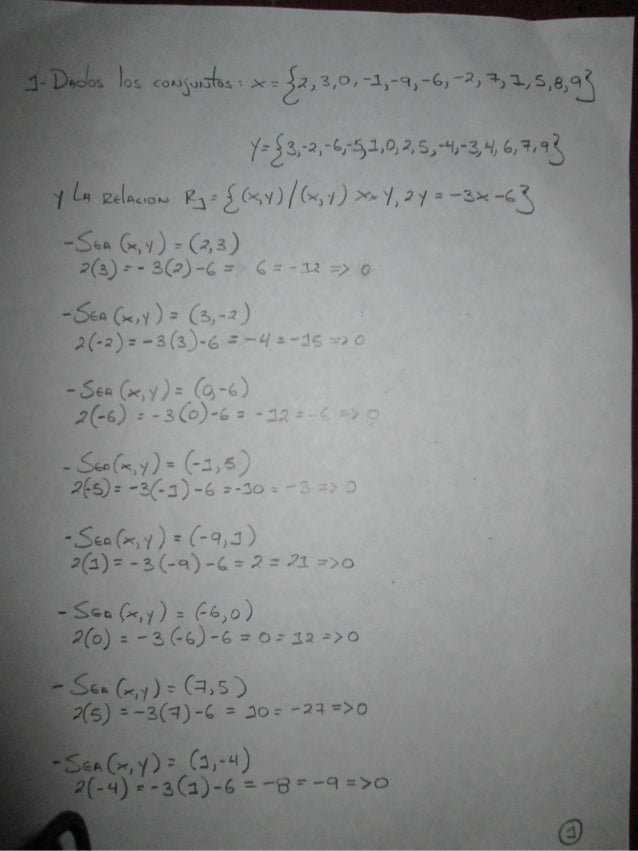 1- Dados los conjuntos: x = {2,3,0,-1,-9,-6,-2,7,1,5,8,9}
Y = {3,-2,-6,-5,1,0,2,5,-4,-3,4,6,7,9}
Y La Relacion R1 = {(x,y)/(x,y) x×Y, 2y = -3x-6}
-Sea (x,y) = (2,3)
2(3) = -3(2)-6 = 6 = -12 => 0
-Sea (x,y) = (3,-2)
2(-2) = -3(3)-6 = -4 = -15 => 0
-Sea (x,y) = (0,-6)
2(-6) = -3(0)-6 = -12 = -6 => 0
-Sea (x,y) = (-1,5)
2(-5) = -3(-1)-6 = -10 = -3 => 0
-Sea (x,y) = (-9,1)
2(1) = -3(-9)-6 = 2 = 21 => 0
-Sea (x,y) = (-6,0)
2(0) = -3(-6)-6 = 0 = 12 => 0
-Sea (x,y) = (7,5)
2(5) = -3(7)-6 = 10 = -27 => 0
-Sea (x,y) = (1,-4)
2(-4) = -3(1)-6 = -8 = -9 => 0
1